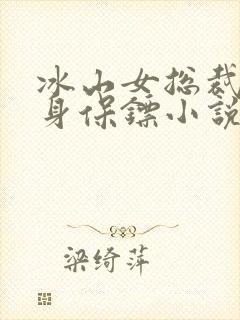 冰山女总裁
身保鏢小說
梁绮萍